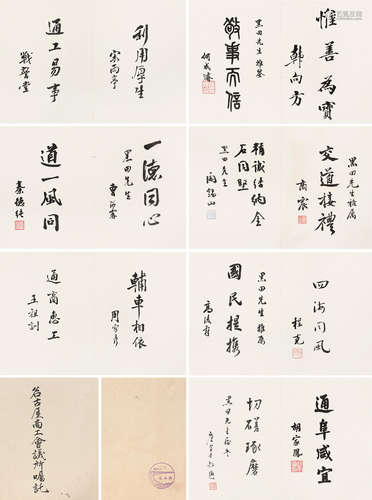 利用厚生
宋雨亭
通工易事
戰警堂
惟善為寶
韓向方
黑田先生雅鑒
敬事而信
何成濬
一德同心
黑田先生
曹汝霖
道一風同
秦德純
黑田先生雅属
交道接禮
商震
精誠結納金
石同堅
黑田先生
閻錫山
輔車相依
周家彦
通商惠工
王祖訓
四海同風
程克
黑田先生雅属
國民提攜
高凌霨
通阜咸宜
胡家鳳
切磋琢磨
黑田先生
名古屋商工會議所囑託